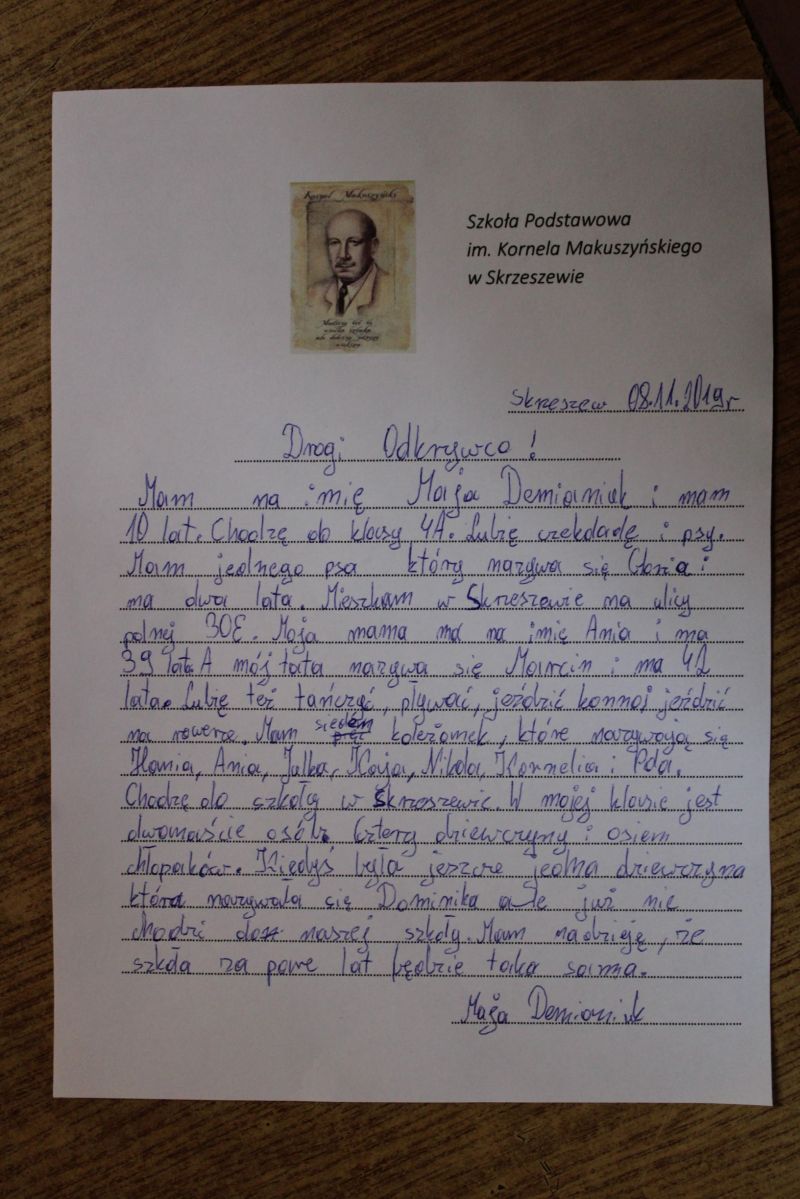 Kornel Makuszyński
Szkoła Podstawowa
im. Kornela Makuszyńskiego
w Skrzeszewie
Skrzeszew 08.11.2019r
Drogi Odkrywco!
Mam na imię Maja Demianiuk i mam
10 lat. Chodzę do klasy 4A. Lubię czekoladę i psy.
Mam jednego psa który nazywa się i
ma dwa lata. Mieszkam w Skrzeszewie na ulicy
polnej 30E. Moja mama ma na imię Ania i ma
39 lat. A mój tata nazywa się Marcin i ma 42
lata. Lubię też tańczyć, pływać, jeździć konno i jeździć
na rowerze. Mam siedem koleżanek, które nazywają się
Hania, Ania, Julka, Kaja, Nikola, Kornelia i Pola.
Chodzę do szkoły w Skrzeszewie. W mojej klasie jest
dwanaście osób. Cztery dziewczyny i osiem
chłopaków. Kiedyś była jeszcze jedna dziewczyna
która nazywała się Dominika ale już nie
chodzi do naszej szkoły. Mam nadzieję, że
szkoła za parę lat będzie taka sama.
Maja Demianiuk